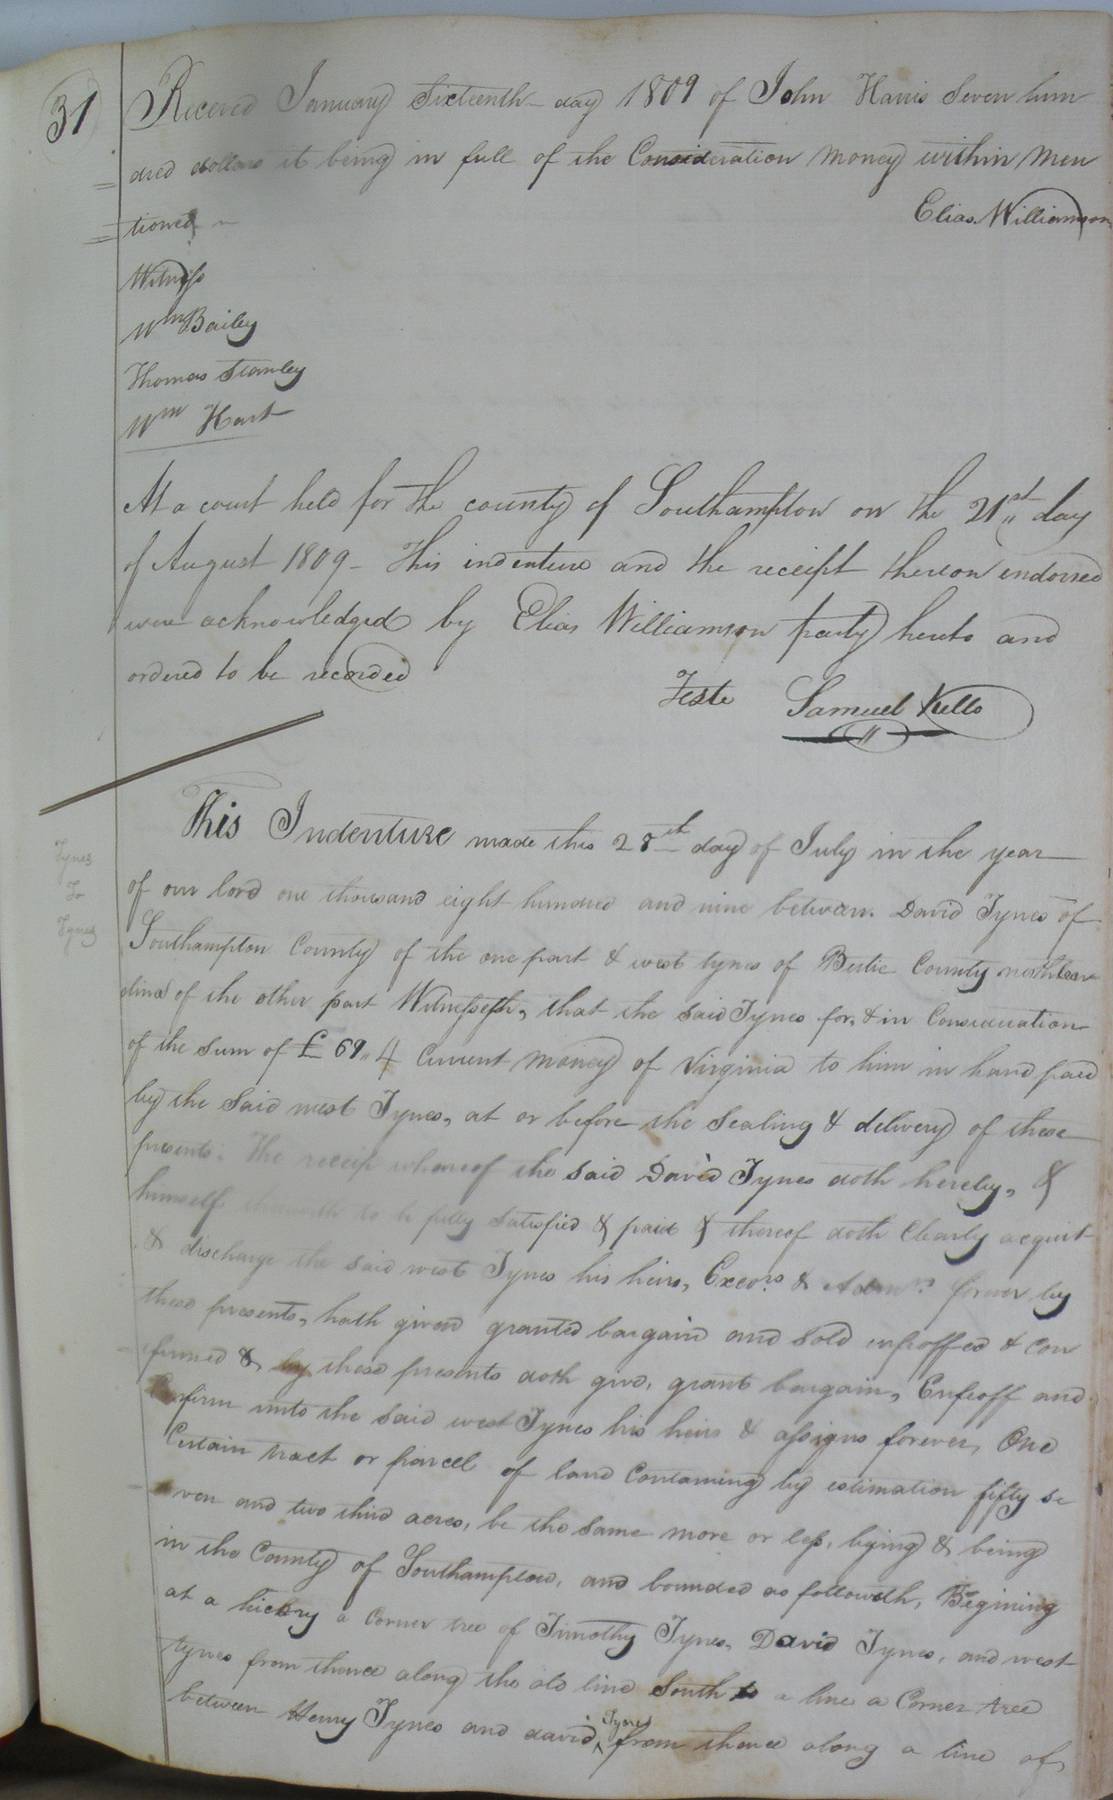 31
Received January Sixteenth day 1809 of John Harris Seven hun
dred dollars it being in full of the Consideration Money within Men
tioned
Elias Williamson
Witness
Wm Bailey
Thomas Stanley
Wm Hart
At a court held for the county of Southampton on the 21st day
of August 1809 - This indenture and the receipt thereon endorsed
were acknowledged by Elias Williamson party hereto and
ordered to be recorded
Teste Samuel Kello
Tynes
To
Tynes
This Indenture made this 28th day of July in the year
of our lord one thousand eight hundred and nine between David Tynes of
Southampton County of the one part & west tynes of Bertie County northcaro
lina of the other part Witnesseth, that the said Tynes for & in Consideration
of the sum of £ 69,, 4 Current money of Virginia to him in hand paid
by the said west Tynes, at or before the sealing & delivery of these
presents. The receip whereof the said David Tynes doth hereby, &
himself therewith to be fully satisfied & paid & thereof doth clearly acquit
& discharge the said west Tynes his heirs, Exeors & Admrs forever by
these presents, hath given granted bargain and sold enfoffed & con
firmed & by these presents doth give, grant bargain, Enfeoff and
Confirm unto the said west Tynes his heirs & assigns forever, One
Certain tract or parcel of land Containing by estimation fifty se
ven and two third acres, be the same more or less, lying & being
in the County of Southampton, and bounded as followeth, Begining
at a hickory a corner tree of Timothy Tynes, David Tynes, and west
tynes from thence along the old line South to a line a Corner tree
between Henry Tynes and david Tynes from thence along a line of